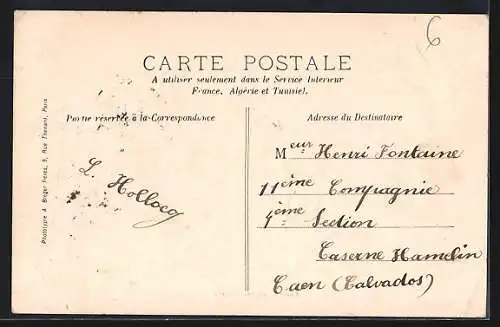 6
CARTE POSTALE
A utiliser seulement dans le Service Interieur
France, Algérie et Tunisie).
Partie réservée à la Correspondance
Adresse du Destinataire
L. Hollocq
Meur Henri Fontaine
11ème Compagnie
4ème Section
Caserne Hamelin
Caen (Calvados)
Phototypie A. Breger Frères, 9, Rue Thénard, Paris